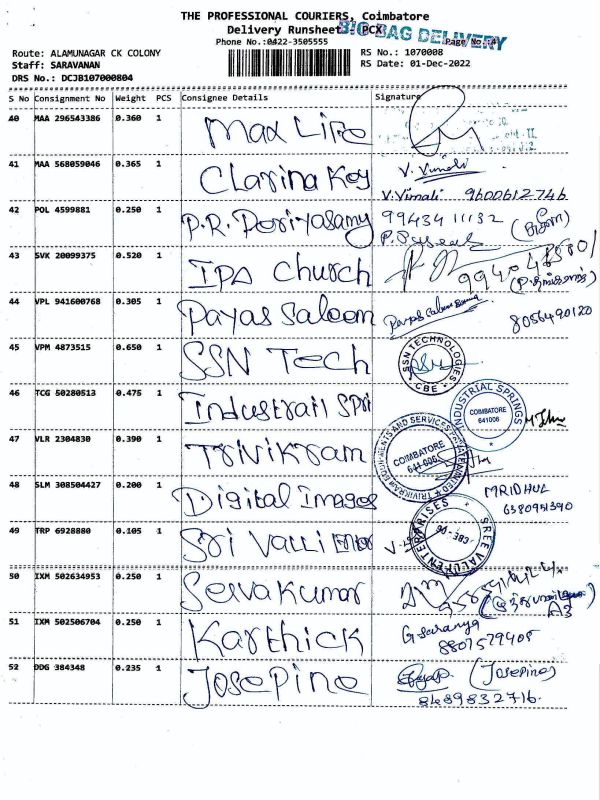 THE PROFESSIONAL COURIERS, Coimbatore
Delivery Runsheet PCX
BIG BAG DELIVERY
Phone No.:0422-3505555
Page No.:4
Route: ALAMUNAGAR CK COLONY
RS No.: 1070008
Staff: SARAVANAN
RS Date: 01-Dec-2022
DRS No.: DCJB107000804
S No Consignment No Weight PCS Consignee Details Signature
40 MAA 296543386 0.360 1 Max Life
41 MAA 568059046 0.365 1 Clarina Key V. Vimali
V. Vimali 9600612746
42 POL 4599881 0.250 1 P.R. Periyasamy 99434 11132
43 SVK 20099375 0.520 1 IPA Church
44 VPL 941600768 0.305 1 Payas Saleem 8056490120
45 VPM 4873515 0.650 1 SSN Tech SSN TECHNOLOGIES CBE
46 TCG 50280513 0.475 1 Industrail Spri INDUSTRIAL SPRINGS COIMBATORE 641006
47 VLR 2304830 0.390 1 Trivikram COIMBATORE 641-006
48 SLM 308504427 0.200 1 Digital Images MRIDHUL
6380951390
49 TRP 6928880 0.105 1 Sri Valli Enter
50 IXM 502634953 0.250 1 Selvakumar
51 IXM 502506704 0.250 1 Karthick G Saranya
8807579408
52 DDG 384348 0.235 1 Josepine (Josepine)
8489832716.